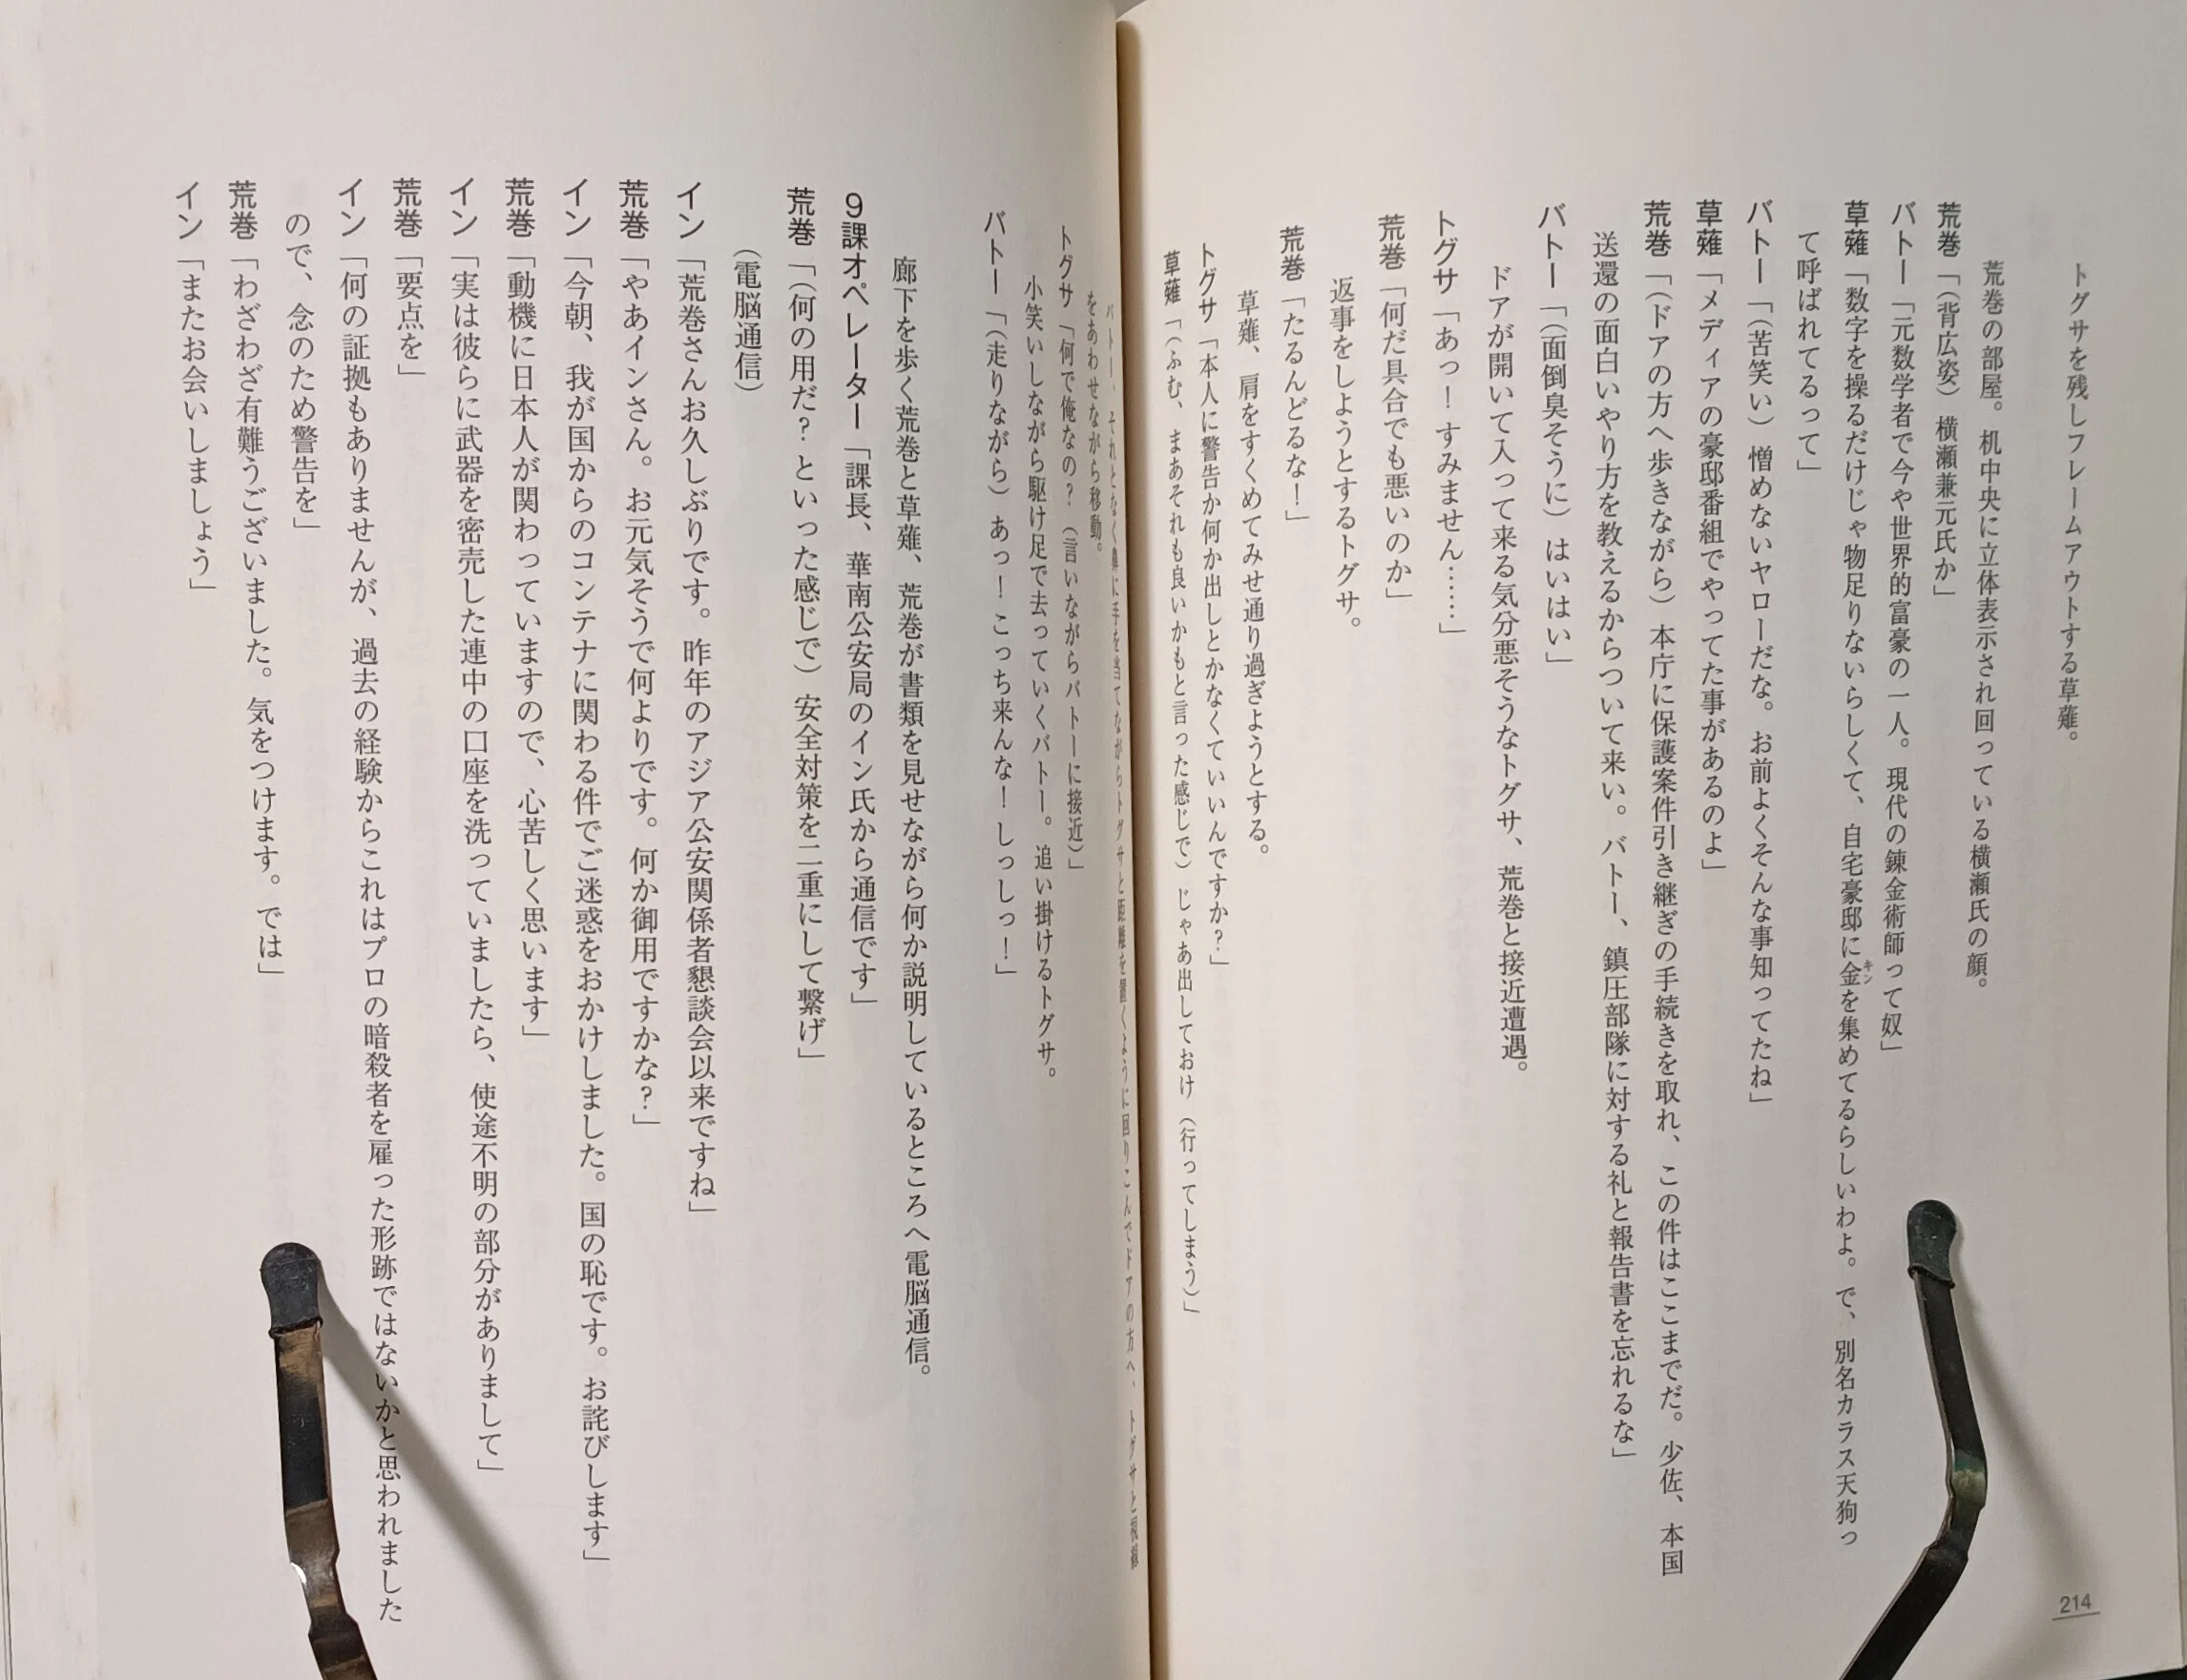 トグサを残しフレームアウトする草薙。
荒巻の部屋。机中央に立体表示され回っている横瀬氏の顔。
荒巻「（背広姿）横瀬兼元氏か」
バトー「元数学者で今や世界的富豪の一人。現代の錬金術師って奴」
草薙「数字を操るだけじゃ物足りないらしくて、自宅豪邸に金を集めてるらしいわよ。で、別名カラス天狗っ
キン
て呼ばれてるって」
バトー「（苦笑い）憎めないヤローだな。お前よくそんな事知ってたね」
草薙「メディアの豪邸番組でやってた事があるのよ」
荒巻「（ドアの方へ歩きながら）本庁に保護案件引き継ぎの手続きを取れ、この件はここまでだ。少佐、本国
送還の面白いやり方を教えるからついて来い。バトー、鎮圧部隊に対する礼と報告書を忘れるな」
バトー「（面倒臭そうに）はいはい」
ドアが開いて入って来る気分悪そうなトグサ、荒巻と接近遭遇。
トグサ「あっ！すみません……」
荒巻「何だ具合でも悪いのか」
返事をしようとするトグサ。
荒巻「たるんどるな！」
草薙、肩をすくめてみせ通り過ぎようとする。
トグサ「本人に警告か何か出しとかなくていいんですか？」
草薙「（ふむ、まあそれも良いかもと言った感じで）じゃあ出しておけ（行ってしまう）」
バトー、それとなく鼻に手を当てながらトグサと距離を置くように回りこんでドアの方へ、トグサと視線
をあわせながら移動。
トグサ「何で俺なの？（言いながらバトーに接近）」
小笑いしながら駆け足で去っていくバトー。追い掛けるトグサ。
バトー「（走りながら）あっ！こっち来んな！しっしっ！」
廊下を歩く荒巻と草薙、荒巻が書類を見せながら何か説明しているところへ電脳通信。
9課オペレーター「課長、華南公安局のイン氏から通信です」
荒巻「（何の用だ？といった感じで）安全対策を二重にして繋げ」
（電脳通信）
イン「荒巻さんお久しぶりです。昨年のアジア公安関係者懇談会以来ですね」
荒巻「やあインさん。お元気そうで何よりです。何か御用ですかな？」
イン「今朝、我が国からのコンテナに関わる件でご迷惑をおかけしました。国の恥です。お詫びします」
荒巻「動機に日本人が関わっていますので、心苦しく思います」
イン「実は彼らに武器を密売した連中の口座を洗っていましたら、使途不明の部分がありまして」
荒巻「要点を」
イン「何の証拠もありませんが、過去の経験からこれはプロの暗殺者を雇った形跡ではないかと思われました
ので、念のため警告を」
荒巻「わざわざ有難うございました。気をつけます。では」
イン「またお会いしましょう」
214